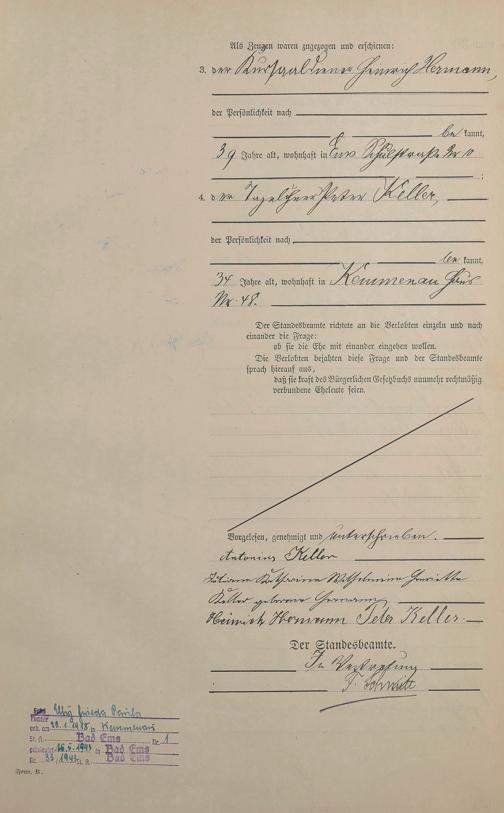 Als Zeugen waren zugezogen und erschienen:
3. der Kursaaldiener Heinrich Hermann,
der Persönlichkeit nach
be kannt,
39 Jahre alt, wohnhaft in Ems Schulstraße Nr. 10
;
4. der Tagelöhner Peter Keller,
der Persönlichkeit nach
be kannt,
34 Jahre alt, wohnhaft in Kemmenau Haus
Nr. 48.
Der Standesbeamte richtete an die Verlobten einzeln und nach
einander die Frage:
ob sie die Ehe mit einander eingehen wollen.
Die Verlobten bejahten diese Frage und der Standesbeamte
sprach hierauf aus,
daß sie kraft des Bürgerlichen Gesetzbuchs nunmehr rechtmäßig
verbundene Eheleute seien.
Vorgelesen, genehmigt und unterschrieben.
Antonius Keller
Katharine Wilhelmine Henriette
Keller geborene Hermann
Heinrich Hermann Peter Keller
Der Standesbeamte.
In Vertretung
F. Schmitt
Frieda Paula
geb. am 28.1.1918 in Kemmenau
St. A. Bad Ems Nr. 1
16.5.1941 in Bad Ems
Nr. 33/1941 St. A. Bad Ems
Form. B.